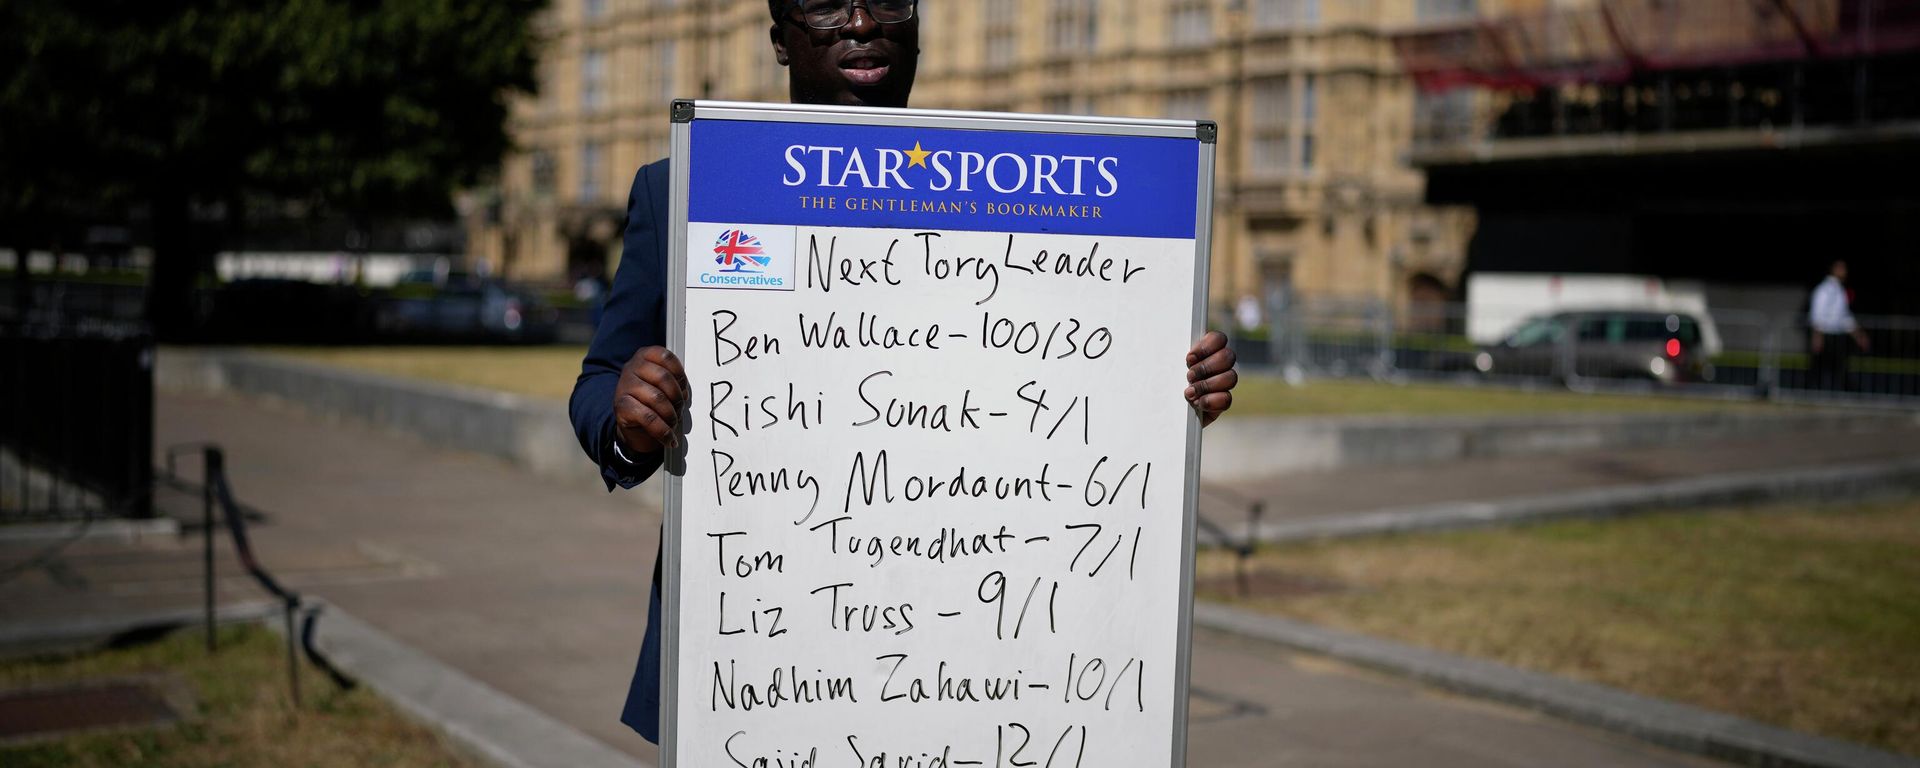 STAR★SPORTS
THE GENTLEMAN'S BOOKMAKER
Conservatives
Next Tory Leader
Ben Wallace - 100/30
Rishi Sunak - 4/1
Penny Mordaunt - 6/1
Tom Tugendhat - 7/1
Liz Truss - 9/1
Nadhim Zahawi - 10/1
Sajid Javid - 12/1